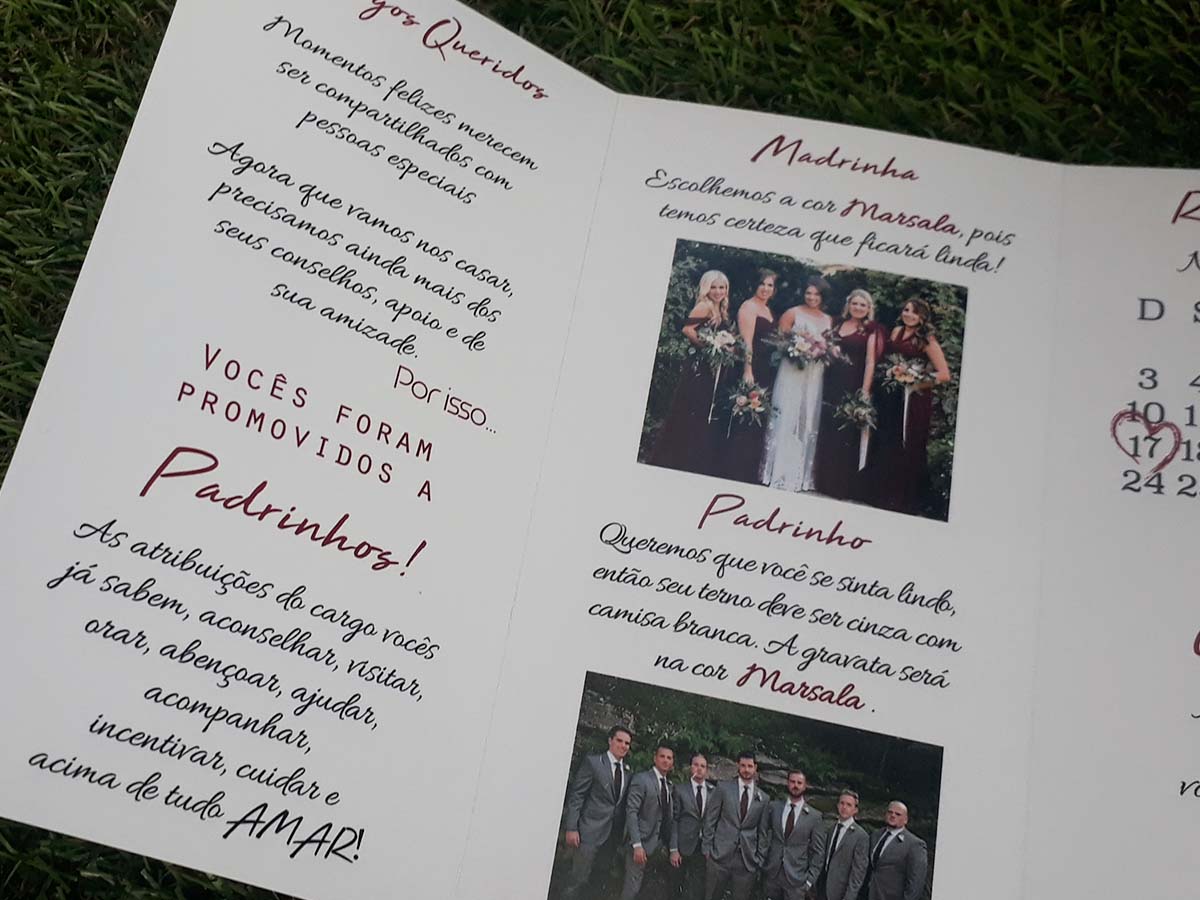 Queridos
Momentos felizes merecem
ser compartilhados com
pessoas especiais
Agora que vamos nos casar,
precisamos ainda mais dos
seus conselhos, apoio e de
sua amizade.
Por isso...
VOCÊS FORAM
PROMOVIDOS A
Padrinhos!
As atribuições do cargo vocês
já sabem, aconselhar, visitar,
orar, abençoar, ajudar,
acompanhar,
incentivar, cuidar e
acima de tudo AMAR!
Madrinha
Escolhemos a cor Marsala, pois
temos certeza que ficará linda!
Padrinho
Queremos que você se sinta lindo,
então seu terno deve ser cinza com
camisa branca. A gravata será
na cor Marsala.
D
3
10
17
24